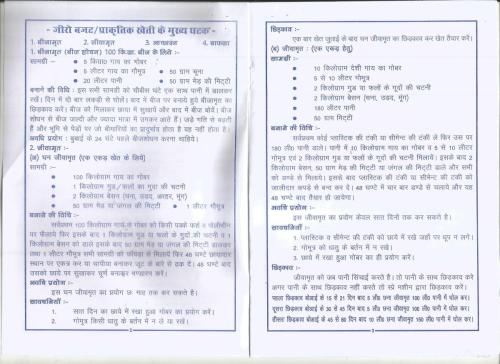 - जीरो बजट/प्राकृतिक खेती के मुख्य घटक -
1. बीजामृत 2. जीवामृत 3. आच्छादन 4. वाफसा
1. बीजामृत (बीज शोधन) 100 कि.ग्रा. बीज के लिये :-
सामग्री - • 5 किग्रा0 गाय का गोबर
• 5 लीटर गाय का गौमूत्र • 50 ग्राम चूना
• 20 लीटर पानी • 50 ग्राम मेड़ की मिट्टी
बनाने की विधि : इन सभी सामग्री को चौबीस घंटे एक साथ पानी में डालकर
रखें। दिन में दो बार लकड़ी से घोलें। बाद में बीज पर बनाये हुये बीजामृत का
छिड़काव करें। बीज को मिलाकर छाया में सुखायें और बाद में बीज बोयें। बीज
शोधन से बीज जल्दी और ज्यादा मात्रा में उगकर आते हैं। जड़े गति से बढ़ती
है और भूमि से पेड़ों पर जो बीमारियों का प्रादुर्भाव होता है वह नहीं होता है।
अवधि प्रयोग : बुबाई के 24 घंटे पहले बीजशोधन करना चाहिये।
2. जीवामृत :-
(अ) घन जीवामृत (एक एकड़ खेत के लिये)
सामग्री :-
• 100 किलोग्राम गाय का गोबर
• 1 किलोग्राम गुड़/फलों का गुदा की चटनी
• 2 किलोग्राम बेसन (चना, उड़द, अरहर, मूंग)
• 50 ग्राम मेड़ या जंगल की मिट्टी • 1 लीटर गौमूत्र
बनाने की विधि :-
सर्वप्रथम 100 किलोग्राम गाय के गोबर को किसी पक्के फर्श व पोलीथीन
पर फैलायें फिर इसके बाद 1 किलोग्राम गुड़ या फलों के गुदों की चटनी व 1
किलोग्राम बेसन को डाले इसके बाद 50 ग्राम मेड़ या जंगल की मिट्टी डालकर
तथा 1 लीटर गौमूत्र सभी सामग्री को फॉवड़ा से मिलायें फिर 48 घण्टे छायादार
स्थान पर एकत्र कर या थापीया बनाकर जूट के बोरे से ढक दें। 48 घण्टे बाद
उसको छाये पर सुखाकर चूर्ण बनाकर भण्डारण करें।
अवधि प्रयोग :-
इस घन जीवामृत का प्रयोग छः माह तक कर सकते है।
सावधानियाँ :-
1. सात दिन का छाये में रखा हुआ गोबर का प्रयोग करें।
2. गोमूत्र किसी धातु के बर्तन में न ले या रखें।
2
छिड़काव :-
एक बार खेत जुताई के बाद घन जीवामृत का छिड़काव कर खेत तैयार करें।
(ब) जीवामृत : (एक एकड़ हेतु)
सामग्री :-
• 10 किलोग्राम देशी गाय का गोबर
• 5 से 10 लीटर गोमूत्र
• 2 किलोग्राम गुड़ या फलों के गूदों की चटनी
• 2 किलोग्राम बेसन (चना, उड़द, मूंग)
• 180 लीटर पानी
• 50 ग्राम मिट्टी
बनाने की विधि :-
सर्वप्रथम कोई प्लास्टिक की टंकी या सीमेन्ट की टंकी लें फिर उस पर
180 ली0 पानी डालें। पानी में 10 किलोग्राम गाय का गोबर व 5 से 10 लीटर
गोमूत्र एवं 2 किलोग्राम गुड़ या फलों के गुदों की चटनी मिलायें। इसके बाद 2
किलोग्राम बेसन, 50 ग्राम मेड़ की मिट्टी या जंगल की मिट्टी डालें और सभी
को डण्डे से मिलायें। इसके बाद प्लास्टिक की टंकी या सीमेन्ट की टंकी को
जालीदार कपड़े से बन्द कर दे। 48 घण्टे में चार बार डण्डे से चलाये और यह
48 घण्टे बाद तैयार हो जायेगा।
अवधि प्रयोग :-
इस जीवामृत का प्रयोग केवल सात दिनों तक कर सकते है।
सावधानियाँ :-
1. प्लास्टिक व सीमेन्ट की टंकी को छाये में रखे जहाँ पर धूप न लगे।
2. गोमूत्र को धातु के बर्तन में न रखें।
3. छाये में रखा हुआ गोबर का ही प्रयोग करें।
छिड़काव :-
जीवामृत को जब पानी सिंचाई करते है। तो पानी के साथ छिड़काव करे
अगर पानी के साथ छिड़काव नहीं करते तो स्प्रे मशीन द्वारा छिड़काव करें।
पहला छिड़काव बोआई के 15 से 21 दिन बाद 5 ली0 छना जीवामृत 100 ली0 पानी में घोल कर।
दूसरा छिड़काव बोआई के 30 से 45 दिन बाद 5 ली0 छना जीवामृत 100 ली0 पानी में घोल कर।
तीसरा छिड़काव बोआई के 45 से 60 दिन बाद 10 ली0 छना जीवामृत 150 ली0 पानी में घोल कर।
3